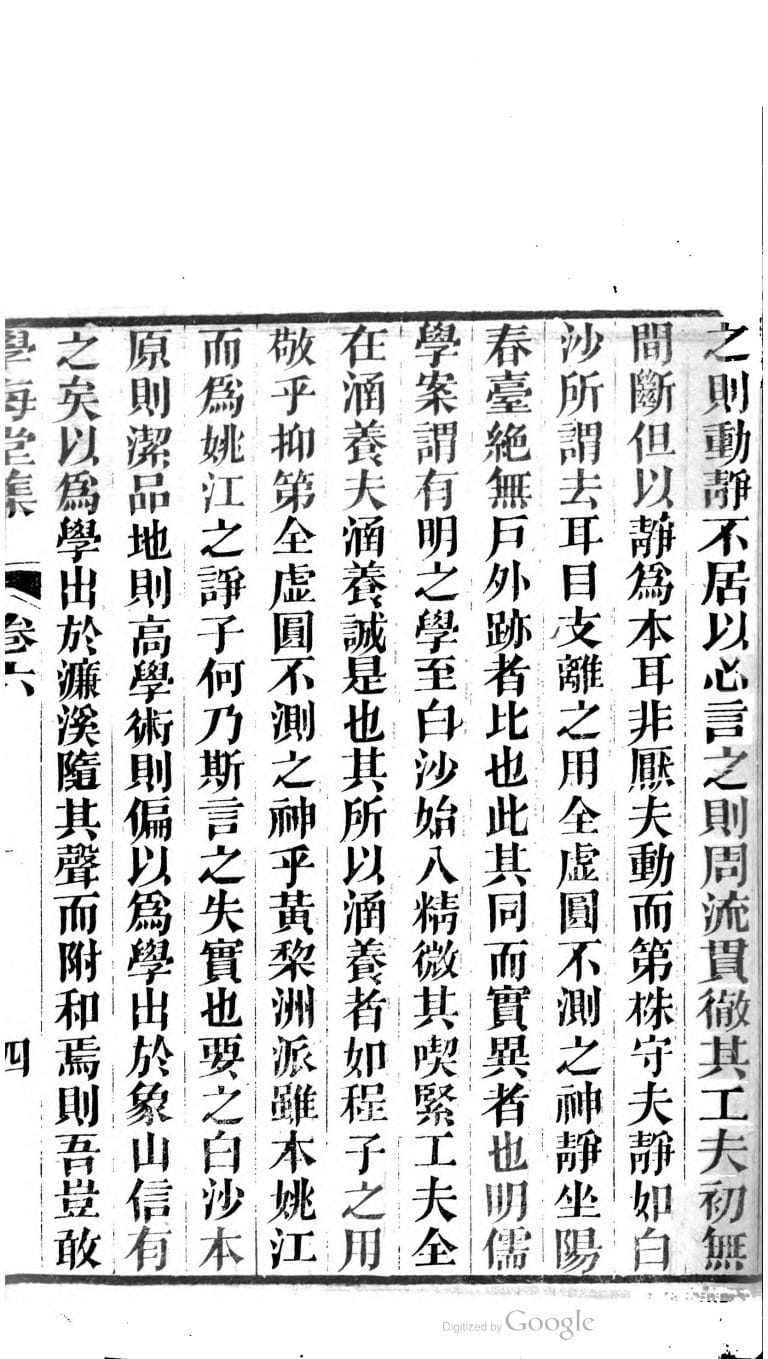 之則動靜不居以心言之則周流貫徹其工夫初無
間斷但以靜爲本耳非厭夫動而第株守夫靜如白
沙所謂去耳目支離之用全虛圓不測之神靜坐陽
春臺絶無戶外跡者比也此其同而實異者也明儒
學案謂有明之學至白沙始入精微其喫緊工夫全
在涵養夫涵養誠是也其所以涵養者如程子之用
敬乎抑第全虛圓不測之神乎黃棃洲派雖本姚江
而爲姚江之諍子何乃斯言之失實也要之白沙本
原則潔品地則高學術則偏以爲學出於象山信有
之矣以爲學出於濂溪隨其聲而附和焉則吾豈敢
學海堂集 卷六 四
Digitized by Google